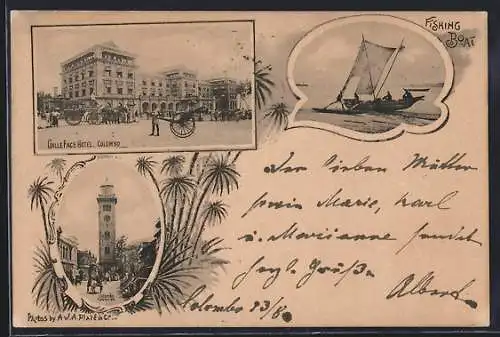 FISHING
BOAT
GALLE FACE HOTEL. COLOMBO
Der lieben Mutter
Marie, Karl
u. Marianne
herzl. Grüße
Albert
Colombo 13/6
PHOTOS BY A.W.A. PLATÉ & Co.